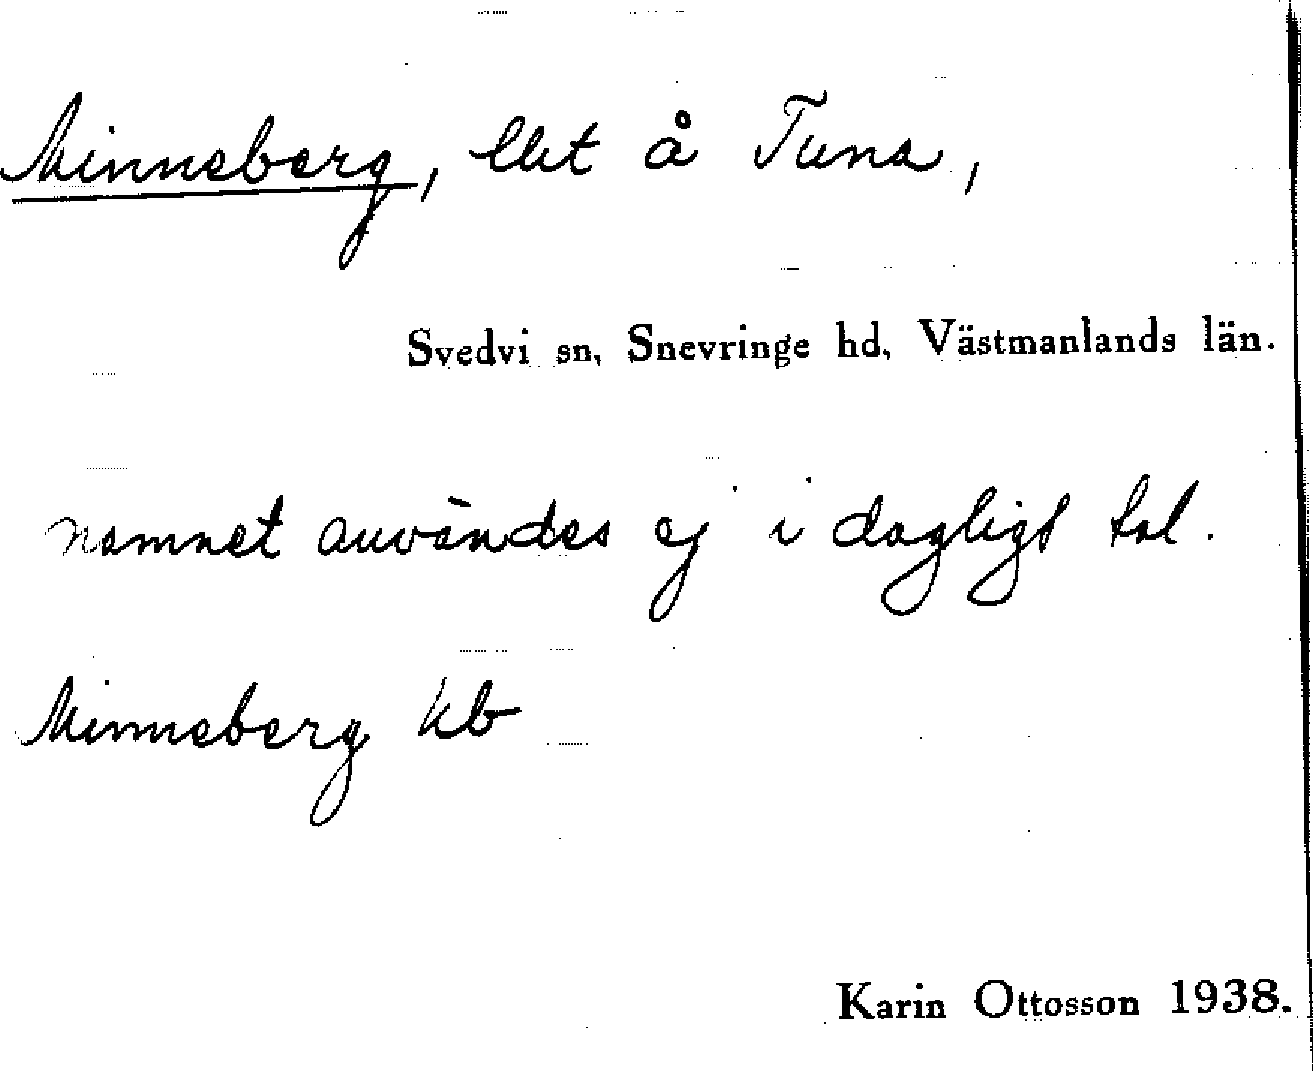 Minneberg, lht å Tuna,
Svedvi sn, Snevringe hd, Västmanlands län.
namnet användes ej i dagligt tal.
Minneberg kb
Karin Ottosson 1938.